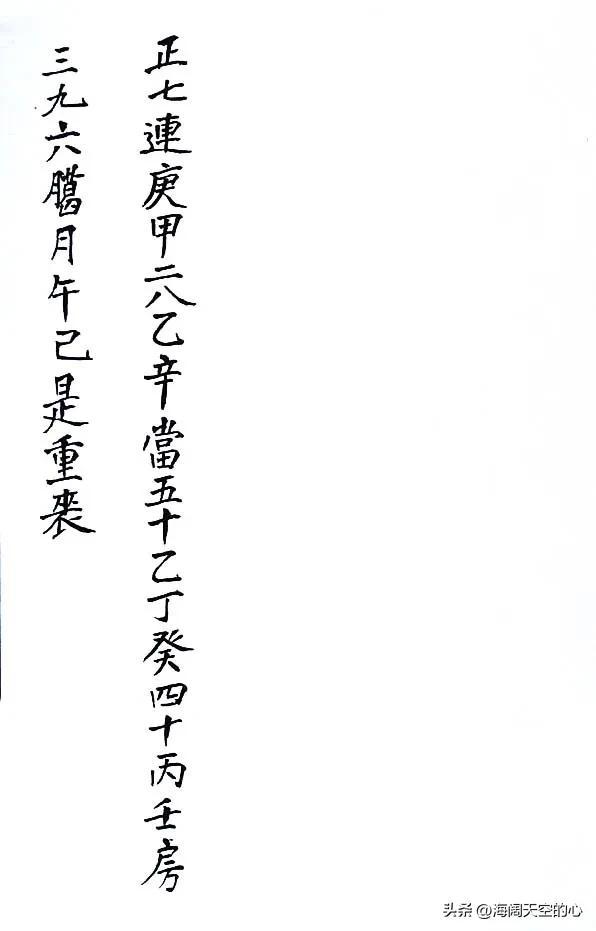 正七連庚甲二八乙辛當五十乙丁癸四十丙壬房
三九六臈月午己是重喪
头条 @海阔天空的心